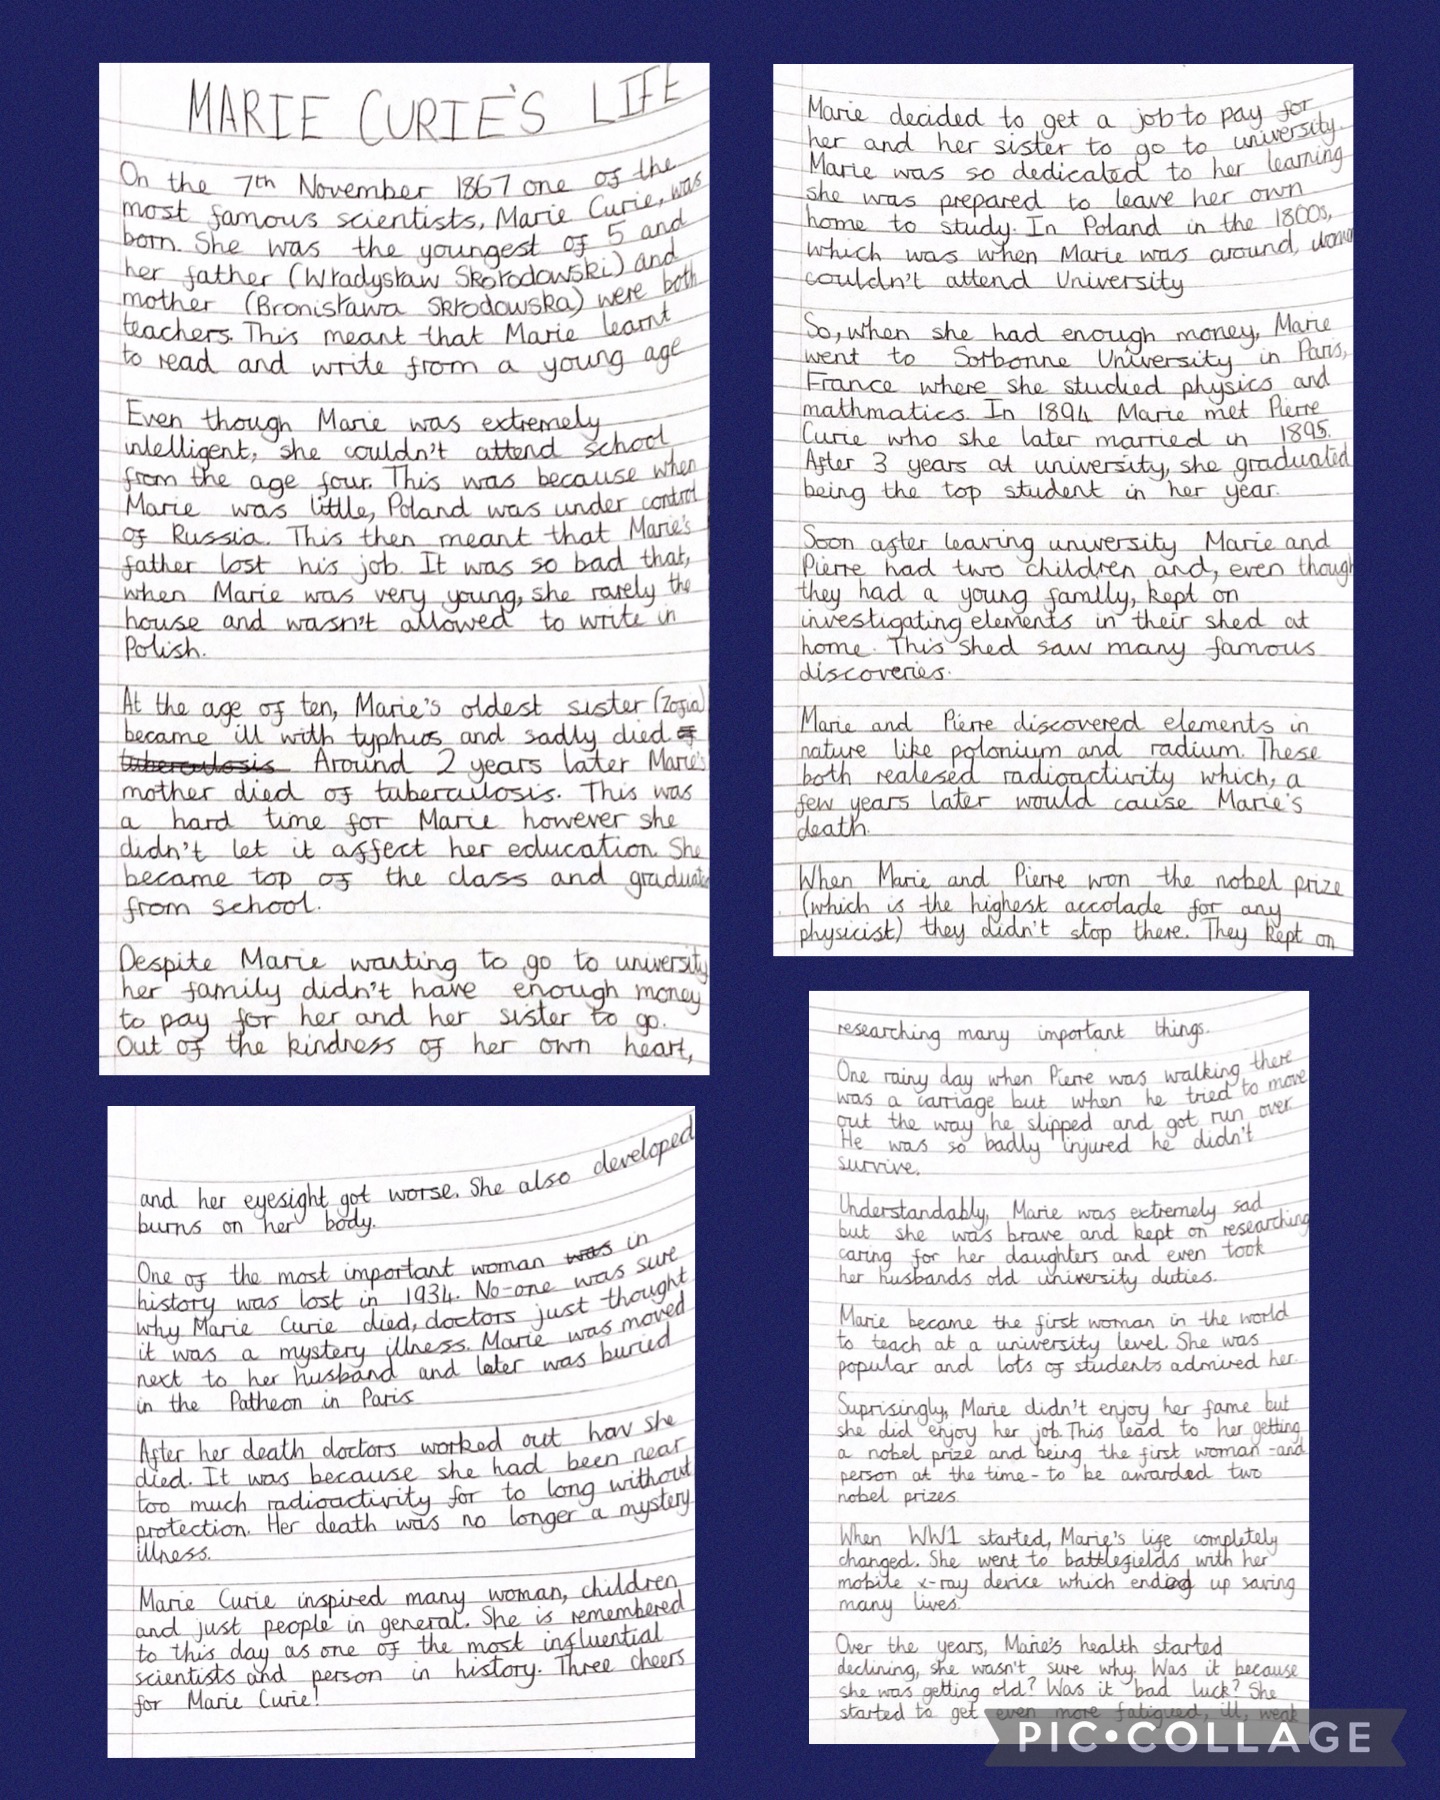 MARIE CURIE'S LIFE
On the 7th November 1867 one of the
most famous scientists, Marie Curie, was
born. She was the youngest of 5 and
her father (Wradysraw Skorodowski) and
mother (Bronisrawa Skrodowska) were both
teachers. This meant that Marie learnt
to read and write from a young age
Even though Marie was extremely
intelligent, she couldn't attend school
from the age four. This was because when
Marie was little, Poland was under control
of Russia. This then meant that Marie's
father lost his job. It was so bad that,
when Marie was very young, she rarely the
house and wasn't allowed to write in
Polish.
At the age of ten, Marie's oldest sister (Zofia)
became ill with typhus and sadly died of
tuberculosis Around 2 years later Marie's
mother died of tuberculosis. This was
a hard time for Marie however she
didn't let it affect her education. She
became top of the class and graduated
from school.
Despite Marie wanting to go to university
her family didn't have enough money
to pay for her and her sister to go.
Out of the kindness of her own heart,
Marie decided to get a job to pay for
her and her sister to go to university.
Marie was so dedicated to her learning
she was prepared to leave her own
home to study. In Poland in the 1800s,
which was when Marie was around,
couldn't attend University
So, when she had enough money, Marie
went to Sorbonne University in Paris,
France where she studied physics and
mathmatics. In 1894 Marie met Pierre
Curie who she later married in 1895.
After 3 years at university, she graduated
being the top student in her year.
Soon after leaving university Marie and
Pierre had two children and, even though
they had a young family, kept on
investigating elements in their shed at
home. This shed saw many famous
discoveries.
Marie and Pierre discovered elements in
nature like polonium and radium. These
both realesed radioactivity which, a
few years later would cause Marie's
death.
When Marie and Pierre won the nobel prize
(which is the highest accolade for any
physicist) they didn't stop there. They kept on
researching many important things.
One rainy day when Pierre was walking there
was a carriage but when he tried to move
out the way he slipped and got run over.
He was so badly injured he didn't
survive.
Understandably, Marie was extremely sad
but she was brave and kept on researching
caring for her daughters and even took
her husbands old university duties.
Marie became the first woman in the world
to teach at a university level. She was
popular and lots of students admired her.
Suprisingly, Marie didn't enjoy her fame but
she did enjoy her job. This lead to her getting
a nobel prize and being the first woman -and
person at the time- to be awarded two
nobel prizes.
When WW1 started, Marie's life completely
changed. She went to battlefields with her
mobile x-ray device which ended up saving
many lives.
Over the years, Marie's health started
declining, she wasn't sure why. Was it because
she was getting old? Was it bad luck? She
started to get even more fatigued, ill, weak
and her eyesight got worse. She also developed
burns on her body.
One of the most important woman was in
history was lost in 1934. No-one was sure
why Marie Curie died, doctors just thought
it was a mystery illness. Marie was moved
next to her husband and later was buried
in the Patheon in Paris
After her death doctors worked out how she
died. It was because she had been near
too much radioactivity for to long without
protection. Her death was no longer a mystery
illness.
Marie Curie inspired many woman, children
and just people in general. She is remembered
to this day as one of the most influential
scientists and person in history. Three cheers
for Marie Curie!
PIC•COLLAGE